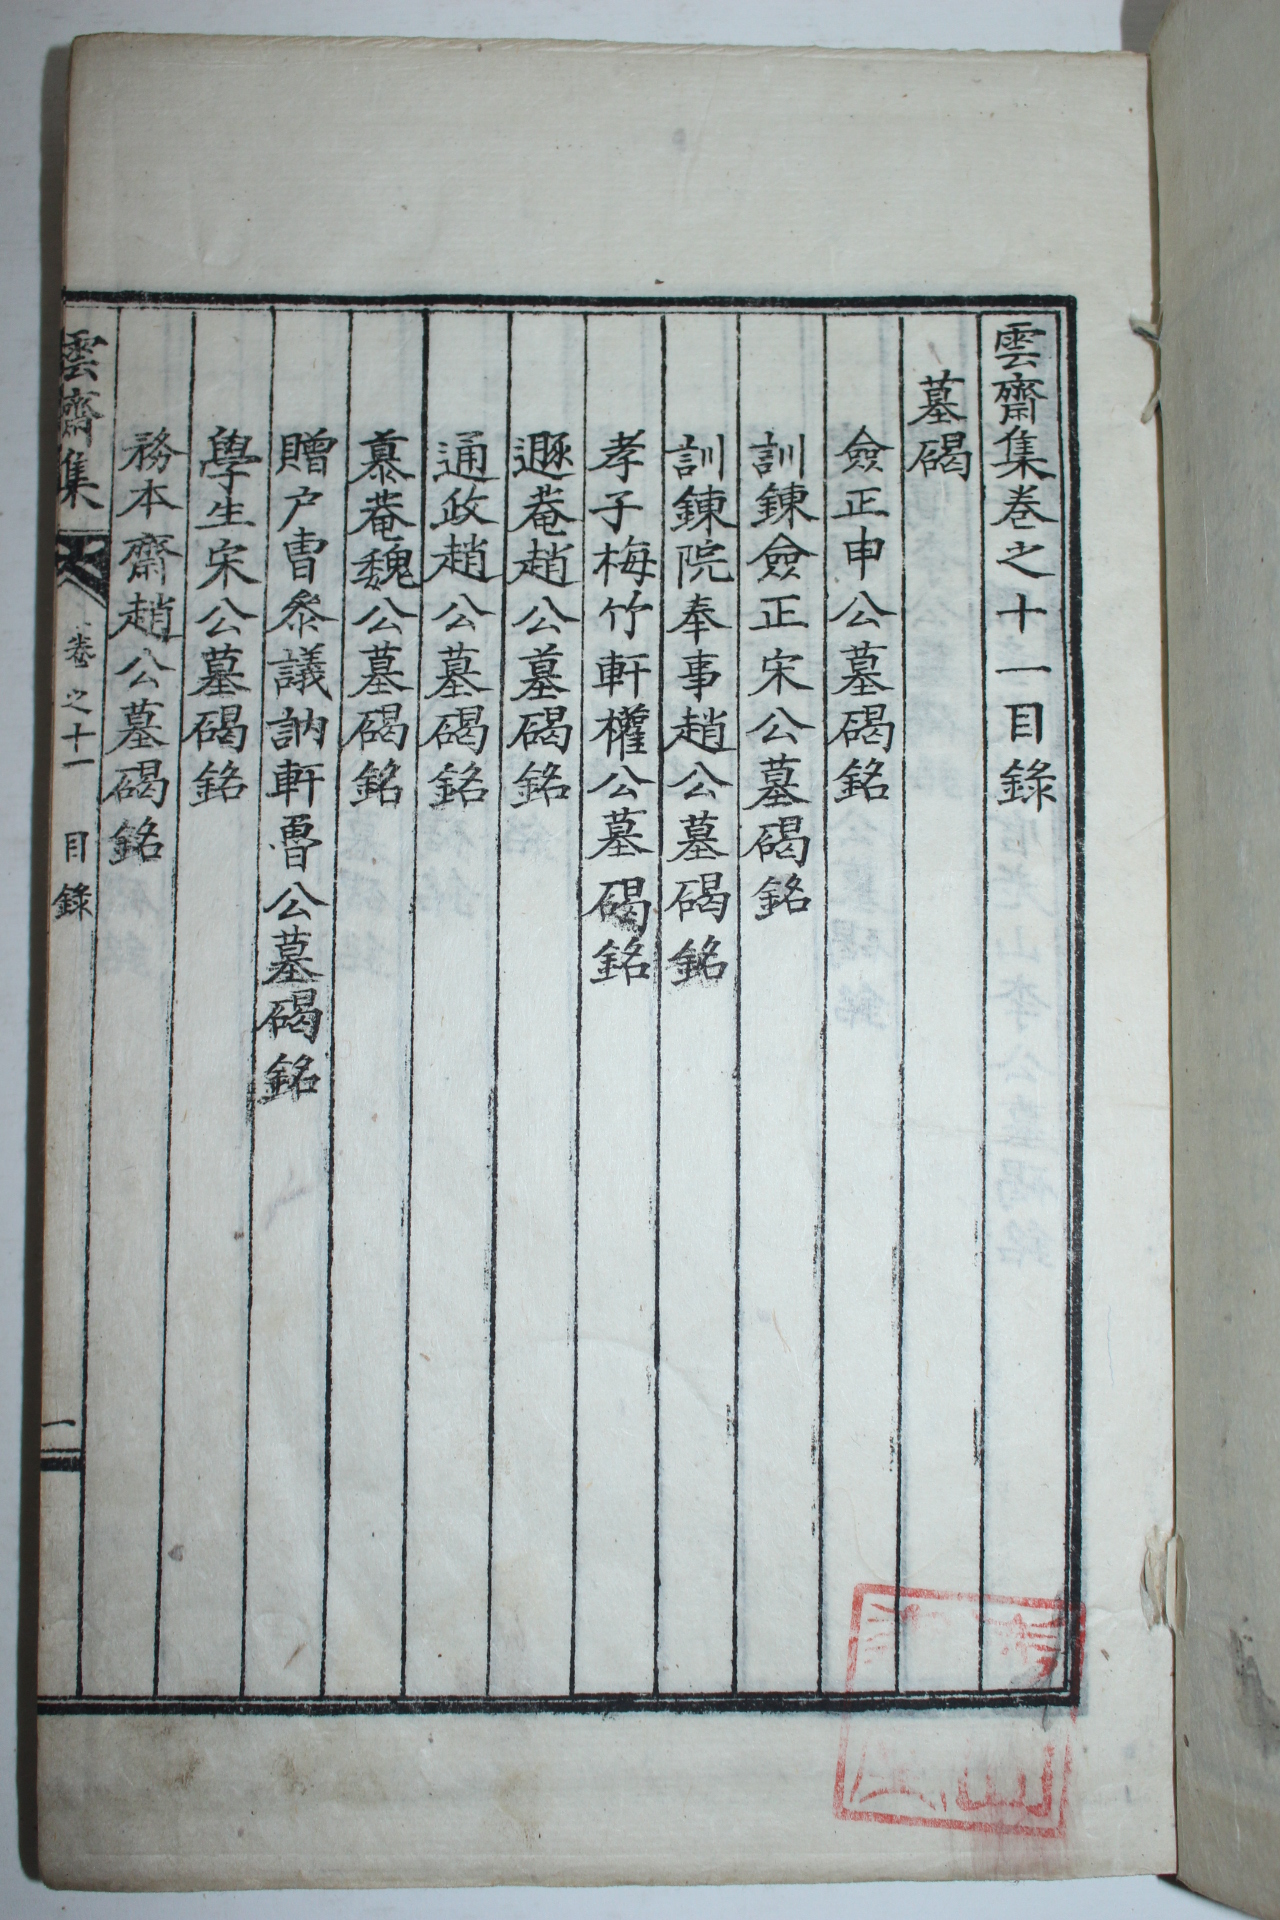 雲齋集卷之十一目錄
墓碣
僉正申公墓碣銘
訓鍊僉正宋公墓碣銘
訓鍊院奉事趙公墓碣銘
孝子梅竹軒權公墓碣銘
遯菴趙公墓碣銘
通政趙公墓碣銘
慕菴魏公墓碣銘
贈户曺參議訥軒曺公墓碣銘
學生宋公墓碣銘
務本齋趙公墓碣銘
雲齋集 卷之十一 目錄 一